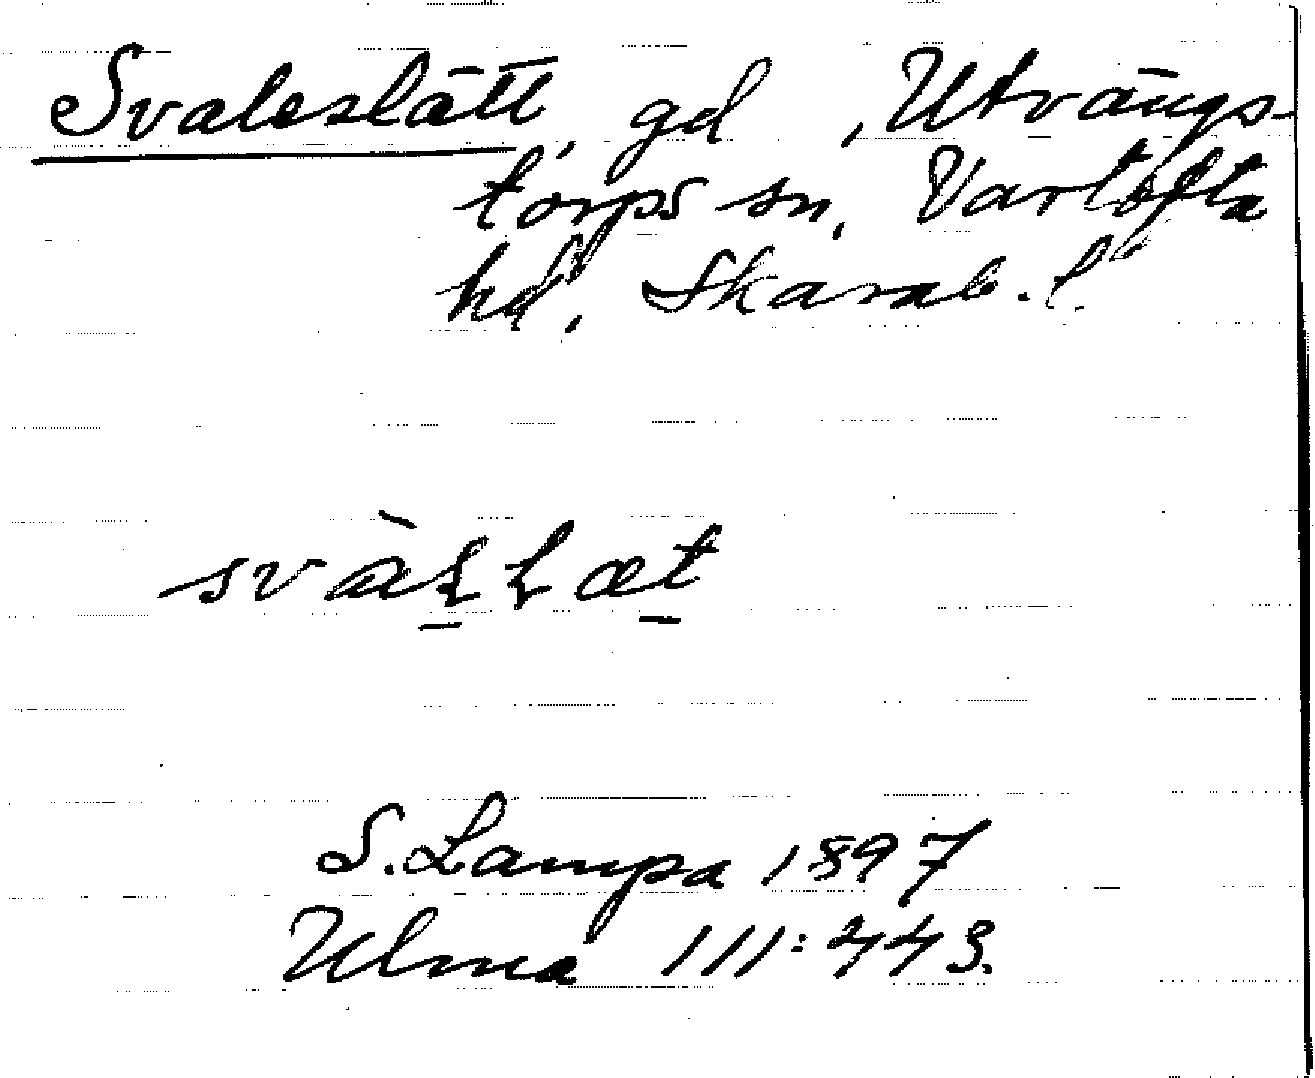 Svaleslätt, gd, Utvängs-
torps sn, Vartofta
hd, Skarab. l.
S. Lampa 1897
Ulma 111:443.